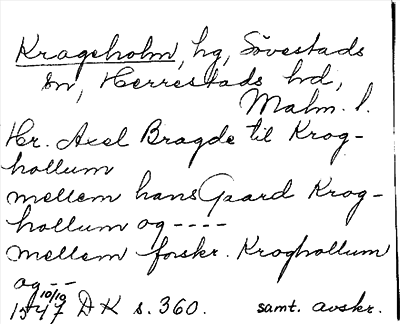 Krageholm, hg, Sövestads
sn, Herrestads hd,
Malm. l.
Hr. Axel Bragde til Krog-
hollum
mellem hans Gaard Krog-
hollum og ----
mellem forskr. Kroghollum
og --
1547 10/10 DK s. 360. samt. avskr.